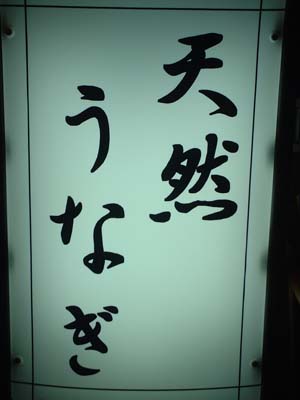 天然
うなぎ